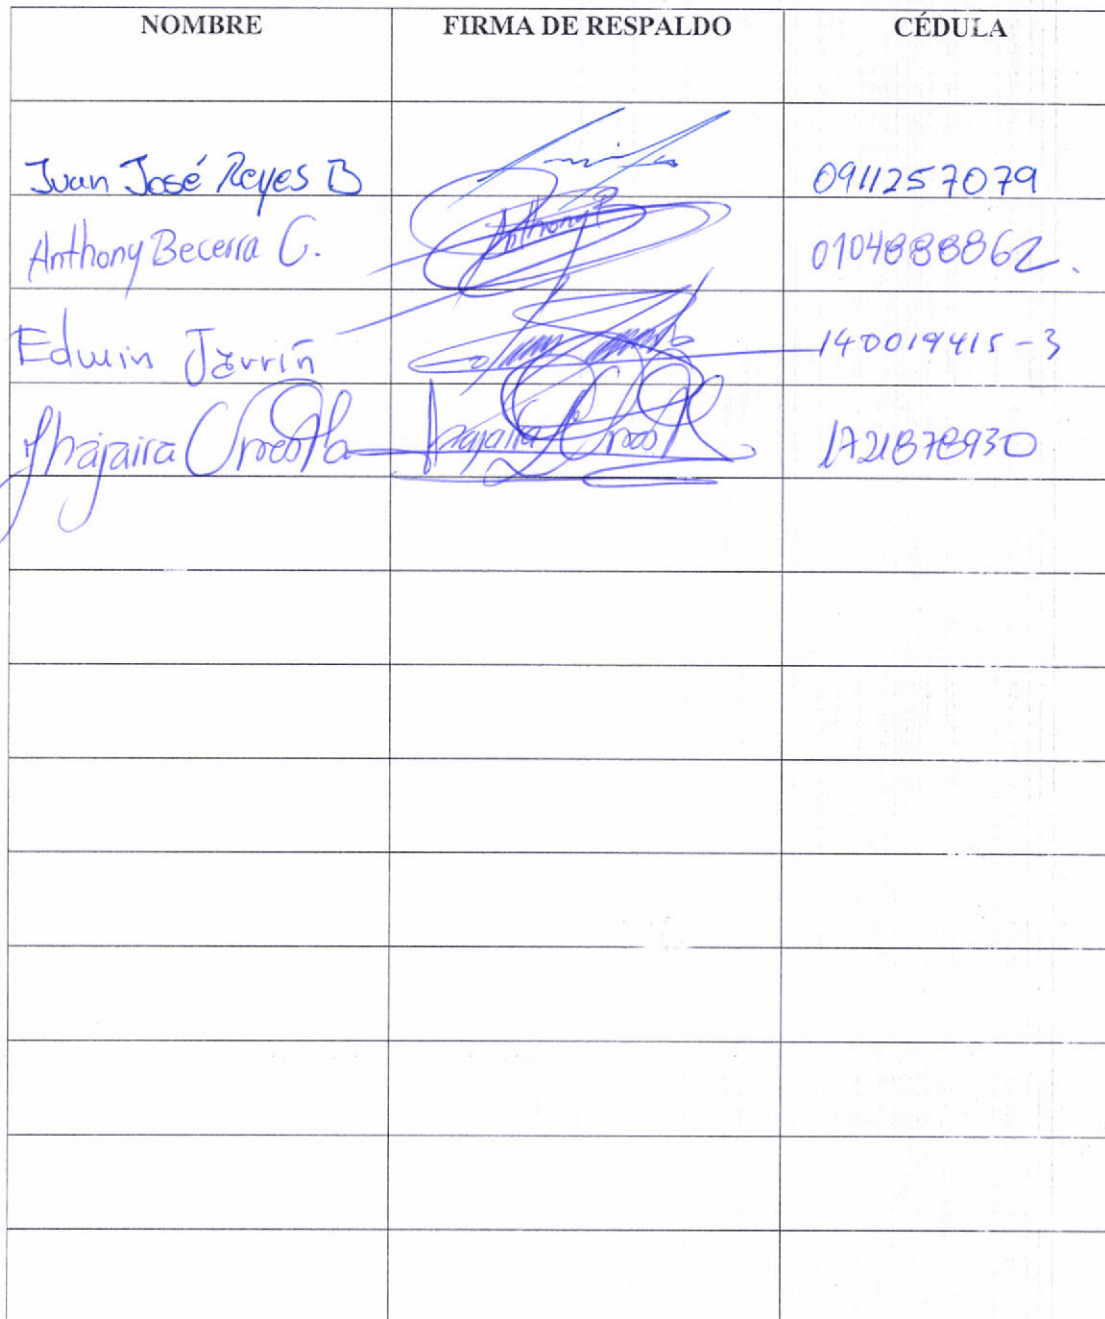 NOMBRE FIRMA DE RESPALDO CÉDULA
Juan José Reyes B 0911257079
Anthony Becerra C. Anthony B 0104888862.
Edwin Jarrín 140019415-3
Jhajaira Urresta Jhajaira Urresta 1721878930